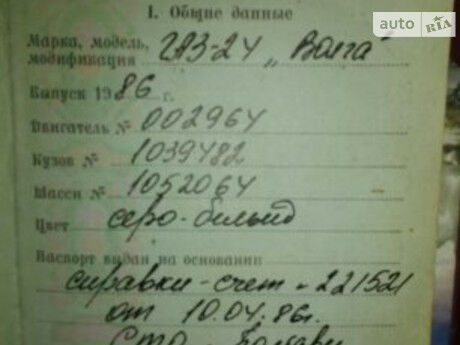 auto RIA
I. Общие данные
Марка, модель, модификация ГАЗ-24 „Волга"
Выпуск 1986 г.
Двигатель № 002964
Кузов № 1039482
Шасси № 1052064
Цвет серо-белый
Паспорт выдан на основании
справки-счет - 221521
от 10.04.86г.